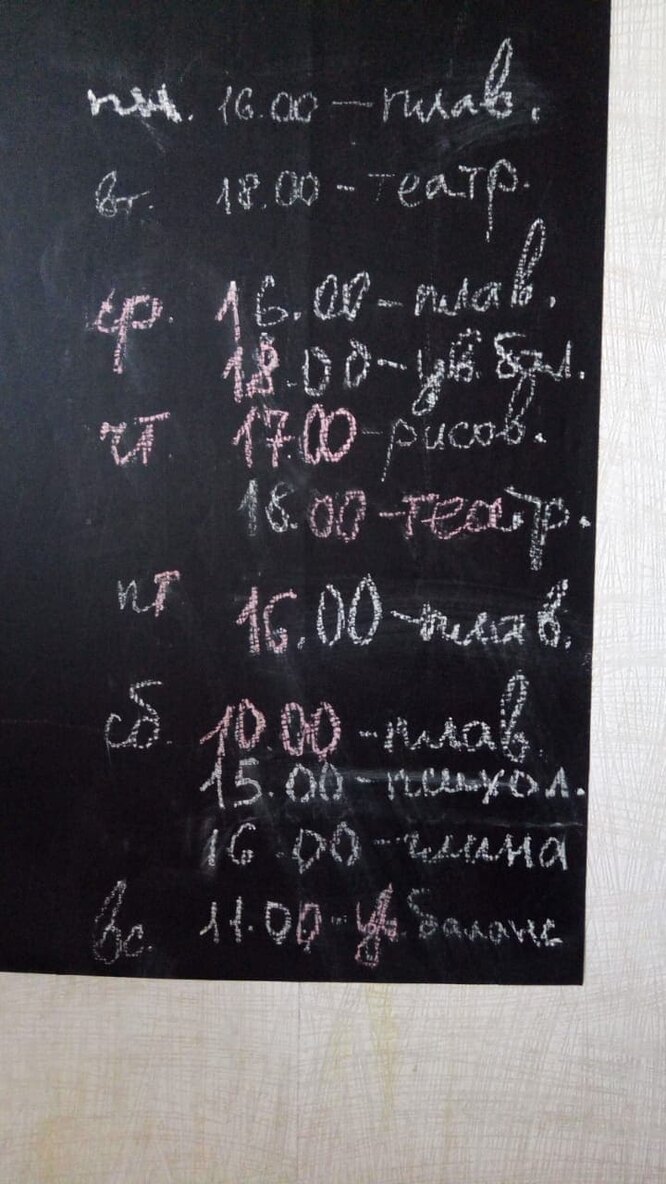 пн. 16.00 – плав.
вт. 18.00 – театр.
ср. 16.00 – плав.
18.00 – ув. бал.
чт 17.00 – рисов.
18.00 – театр.
пт 16.00 – плав.
сб. 10.00 – плав.
15.00 – психол.
16.00 – глина
вс 11.00 – ув. баланс